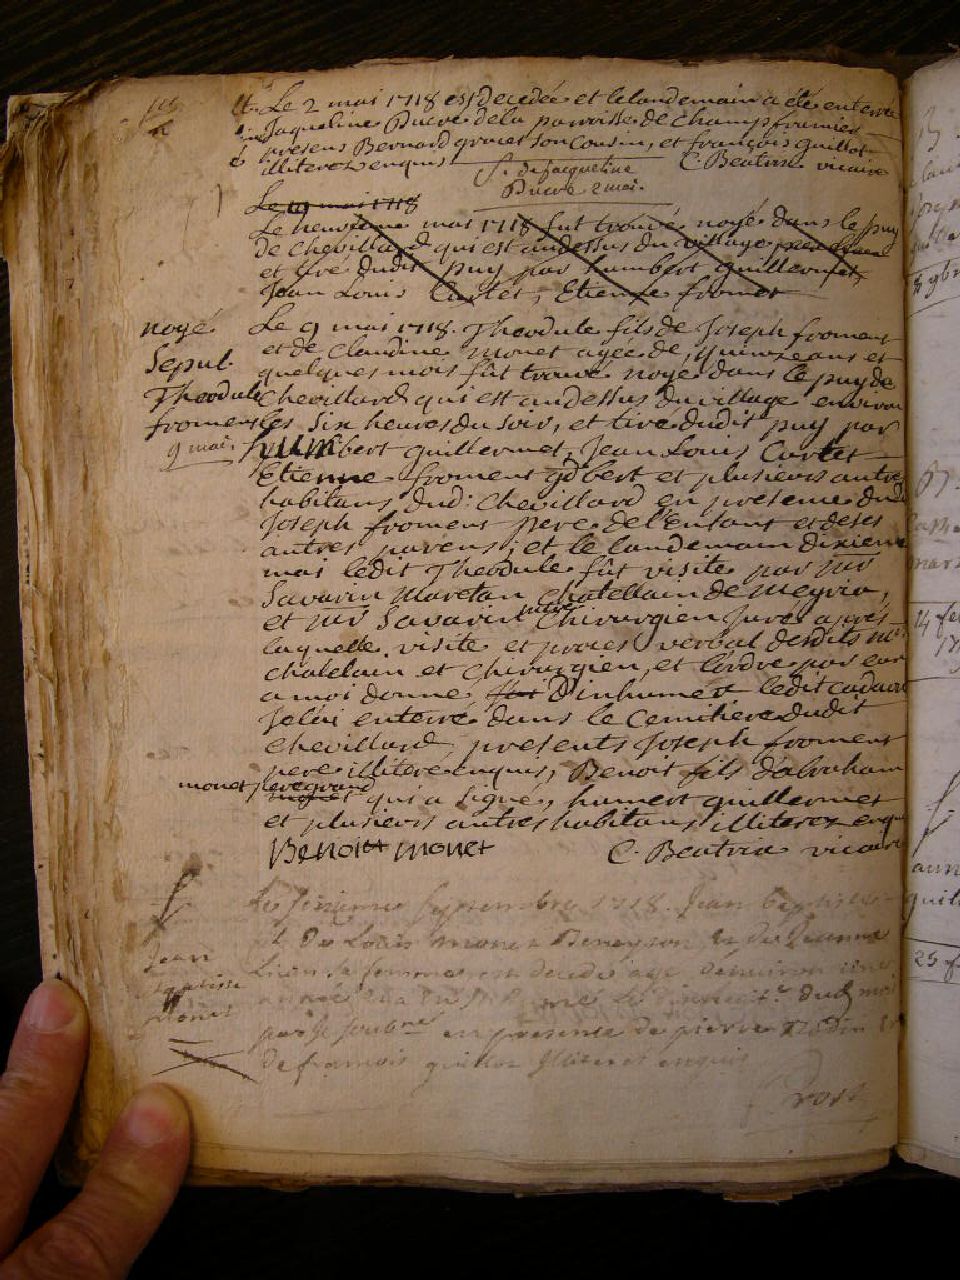 Le 2 mai 1718 est decedée et le landemain a eté enterré
Jaqueline Ducré de la parroisse de champfromier
presens Bernard grocet son Cousin, et françois guillot
illiterez enquis C. Beatrix vicaire
S. de jacqueline
Ducré 2 mai.
Le 9 mai 1718
Le neuvième mai 1718 fut trouvé noyé dans le puy
de chevillard qui est audessus du village
et tiré dudit puy par humbert guillermet,
Jean Louis Cartet, Etienne froment
noyé
Sepul.
Theodule
froment
9 mai.
Le 9 mai 1718. Theodule fils de Joseph froment
et de Claudine monet agée de quinze ans et
quelques mois fût trouvé noyé dans le puy de
Chevillard qui est audessus du village environ
les six heures du soir, et tiré dudit puy par
humbert guillermet, Jean Louis Cartet
Etienne froment et plusieurs autres
habitans dud: chevillard en presence dud
Joseph froment pere de l'enfant et de ses
autres parens, et le landemain dixieme
mai ledit Theodule fût visité par mr
Savarin Maretan chatellain de meyria,
et mr Savarin Chirurgien juré après
laquelle visite et proces verbal desdits mrs
chatelain et Chirurgien, et l'ordre par eux
a moi donné d'inhumer ledit cadavre
Je l'ai enterré dans le Cemitiere dudit
chevillard, presents Joseph froment
pere illiteré enquis, Benoit fils d'abraham
monet
qui a signé, humert guillermet
et plusieurs autres habitans illiterez enquis
Benoist monet C. Beatrix vicaire
Jean
baptiste
monet
Le septembre 1718. Jean baptiste
de Louis monet et de Jeanne
sa femme est decedé agé d'environ
dud mois
par le soubné en presence de pierre
de francois guillot Illiteret enquis